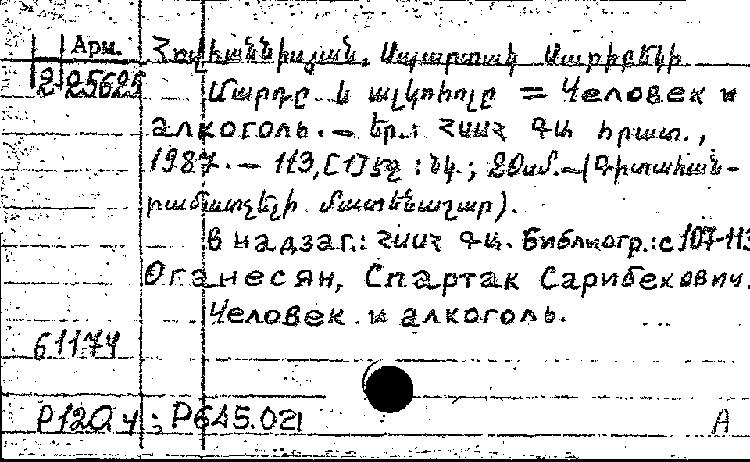 Арм. Հովհաննիսյան, Սպարտակ Սարիբեկի
2 25625 Մարդը և ալկոհոլը = Человек и
алкоголь. – Եր.: ՀՍՍՀ ԳԱ հրատ.,
1987. – 113,[1] էջ : նկ.; 20սմ.–(Գիտահան-
րամատչելի մատենաշար).
В надзаг.: ՀՍՍՀ ԳԱ. Библиогр.: с 107-113
Оганесян, Спартак Сарибекович.
Человек и алкоголь.
61174
Р120.4 ; Р645.021 А